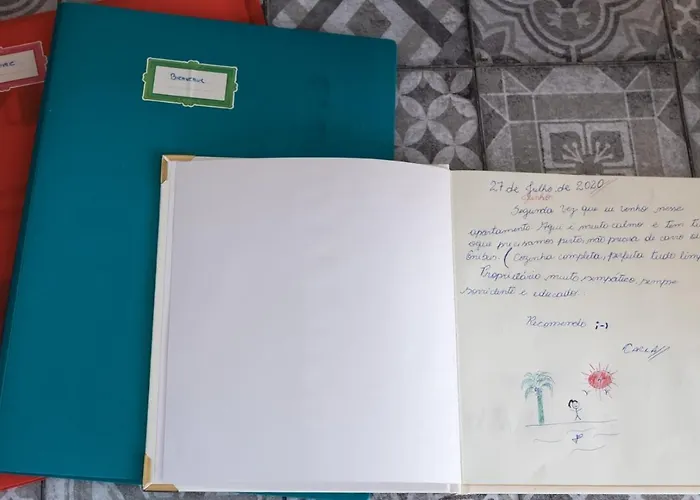 Bienvenue
27 de Julho de 2020
Junho
Segunda vez que eu venho nesse
apartamento. Aqui é muito calmo e tem tu
oque precisamos perto, não precisa de carro
ônibus. (Cozinha completa, perfeita tudo limp
Proprietário muito simpático, sempre
sorridente e educador.
Recomendo ;-)